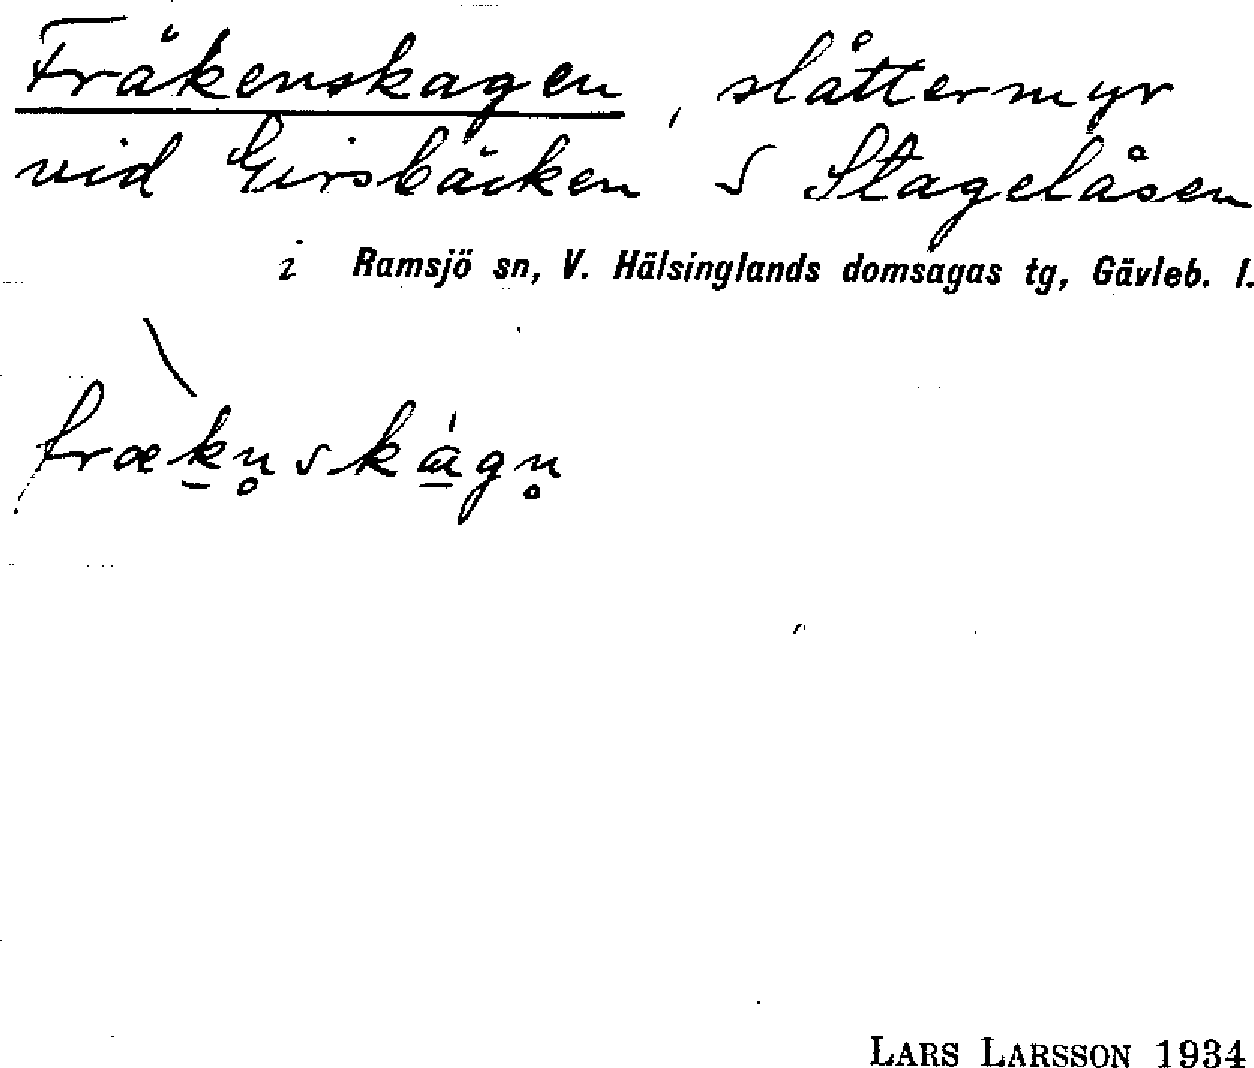 Fräkenskagen, slåttermyr
vid Girsbäcken S Stagelåsen
i Ramsjö sn, V. Hälsinglands domsagas tg, Gävleb. l.
LARS LARSSON 1934